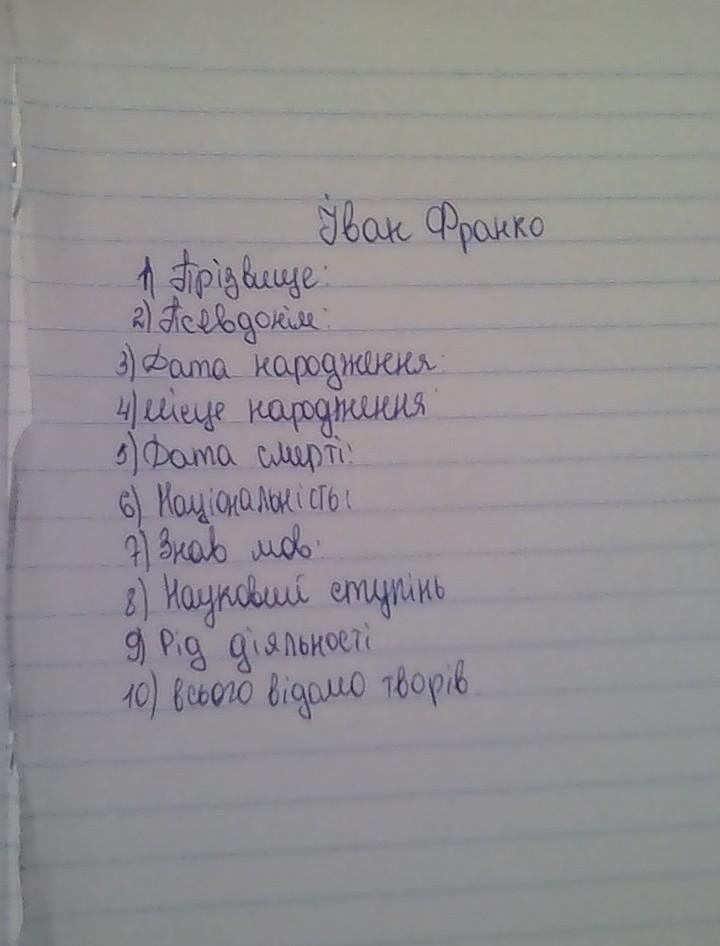 Іван Франко
1) Прізвище:
2) Псевдонім:
3) Дата народження:
4) Місце народження
5) Дата смерті:
6) Національність:
7) Знав мов:
8) Науковий ступінь
9) Рід діяльності
10) всього відомо творів.